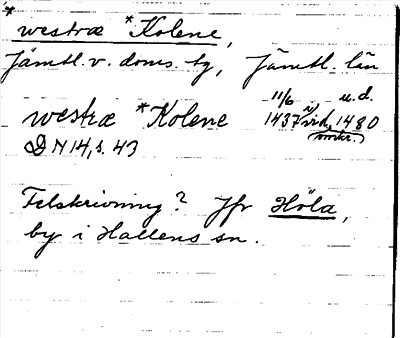 *
westræ *Kolene,
Jämtl. v. doms. tg, Jämtl. län
westræ *Kolene 11/6 1437 i vid. u.d. 1480 omkr.
DN 14, s. 43
Felskrivning? Jfr Höla,
by i Hallens sn.